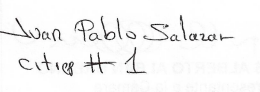 Juan Pablo Salazar
cities # 1